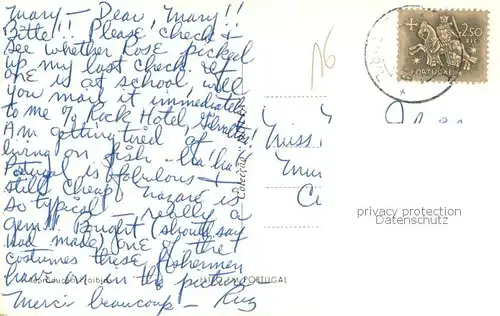 Mary — Dear, Mary!!
Bitte!! Please check &
see whether Rose picked
up my last check. If
one is at school, will
you mail it immediately
to me % Rock Hotel, Gibraltar!
Am getting tired of
living on fish - ha! ha!
Portugal is fabulous +
still cheap! Nazaré is
so typical — really a
gem!! Bought (should say
had made) one of the
costumes these fishermen
have on in the picture
Merci beaucoup —
Miss.
16
2$50
PORTUGAL
PORTUGAL
privacy protection
Datenschutz